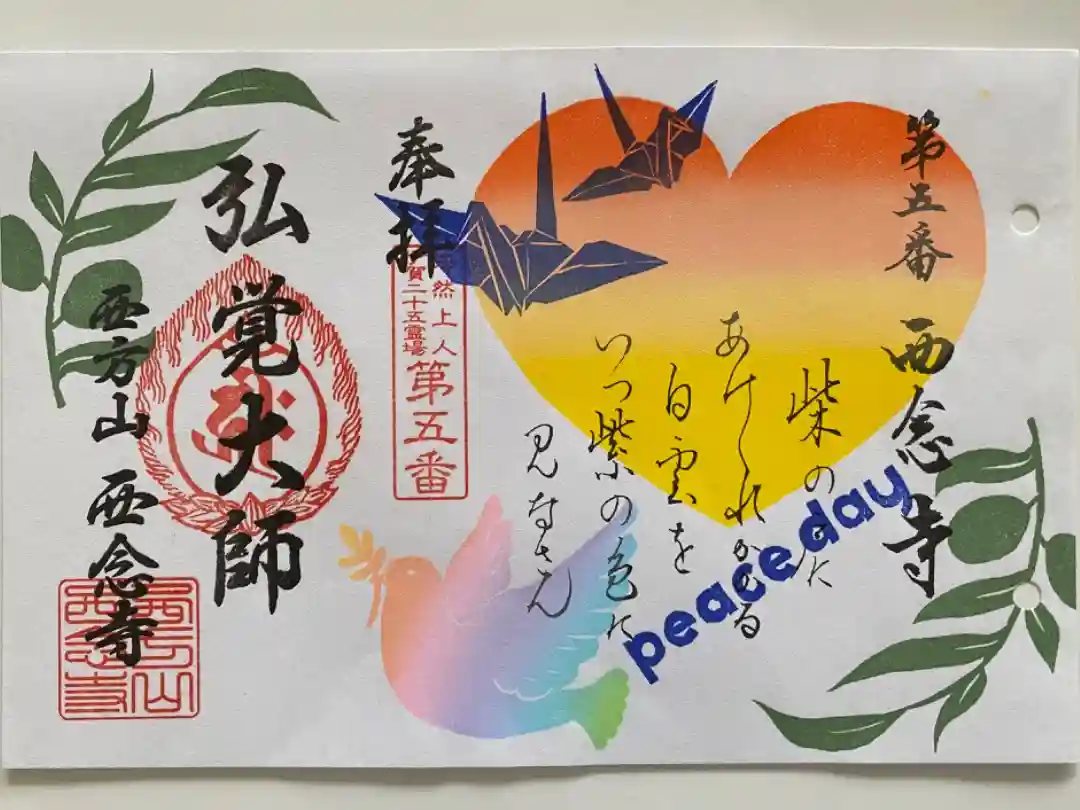 第五番 西念寺
柴の戸に
あけくれかかる
白雲を
いつ紫の色に
見なさん
peace day
奉拝
然上人
賀二十五霊場
第五番
弘覚大師
西方山 西念寺
西方山
西念寺